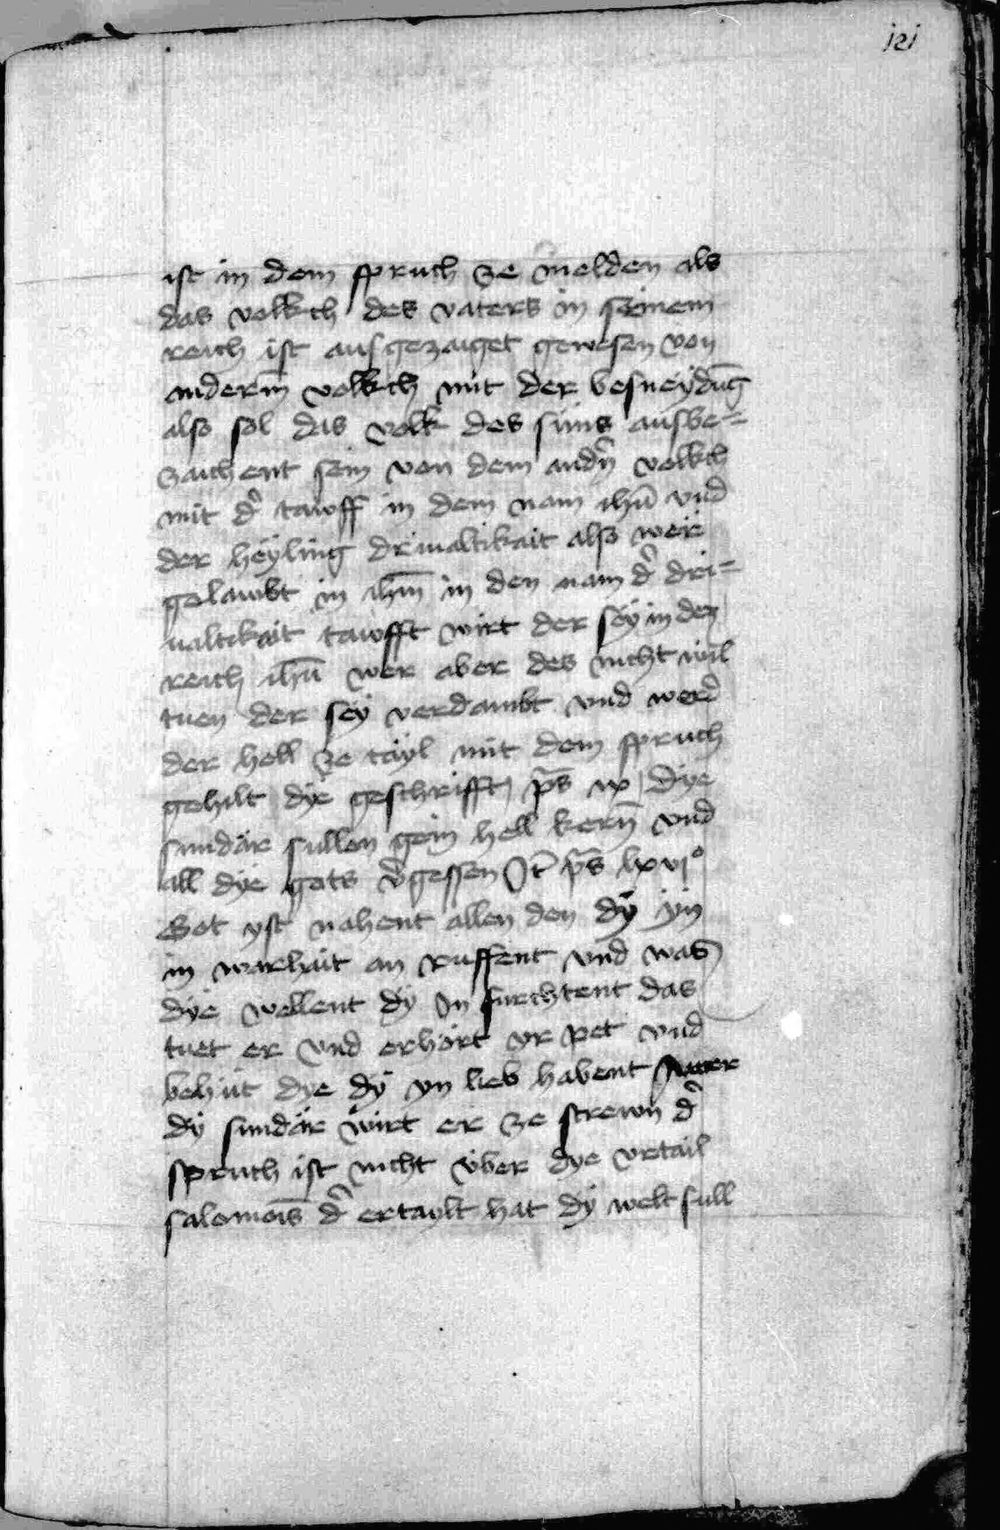 121
ist in dem spruch ze melden als
das volkch des vaters in seinem
reich ist ausgezaiget gewesen von
anderm̄ volkch mit der besneydūg
also sol das volk des suns ausbe=
zaichent sein von dem andn̄ volkch
mit d̄ tawff in dem nam ihū vnd
der heyling driualtikait also wer
gelawbt in ihm̄ in den nam d̄ dri=
ualtikait tawfft wirt der sey in dez
reich ihū wer aber des nicht wil
tuen der sey verdambt vnd werd
der hell ze tayl mit dem spruch
gehilt dye geschrifft p̄s ix Dye
sundär sullen gein hell kern̄ vnd
all dye gots v̄gessen It̄ p̄s lxvi°
Got yst nahent allen den dy yn
in warhait an ruffent vnd was
dye wellent dy In furchtent das
tuet er vnd erhört yr pet vnd
behüt dye dÿ yn lieb habent
dÿ sundär wirt er ze strewn d̄
spruch ist nicht über dye vrtail
salomois̄ d̄ ertaylt hat dÿ welt sull